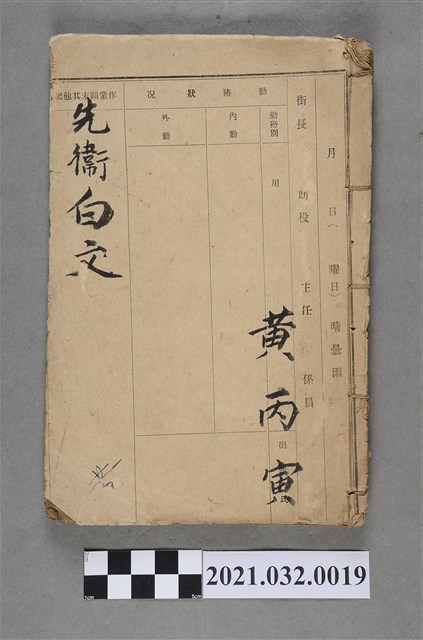 月　日（　曜日）晴曇雨
街長　助役　主任　係員
勤務狀況
勤務別
內勤
外勤
用
出
作業顛末其他記
黃丙寅
先衛白文
2021.032.0019
1cm
5cm